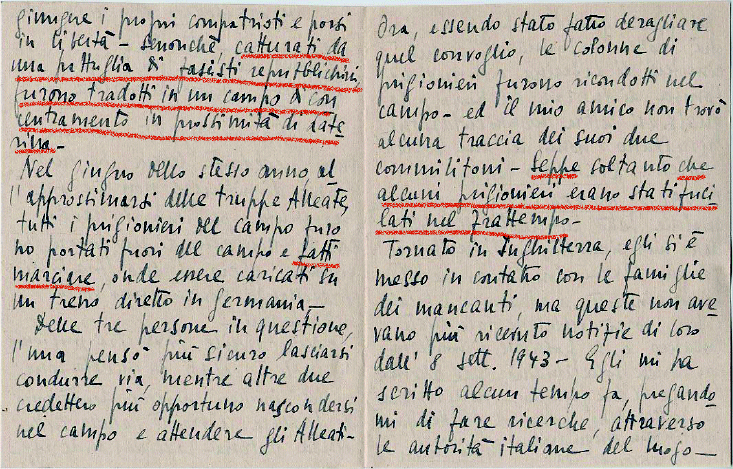 giungere i propri compatrioti e porsi
in libertà - senonchè, catturati da
una pattuglia di fascisti repubblichini
furono tradotti in un campo di con
centramento in prossimità di Late
rina -
Nel giugno dello stesso anno al
l'approssimarsi delle truppe Alleate,
tutti i prigionieri del campo furo
no portati fuori del campo e fatti
marciare, onde essere caricati su
un treno diretto in Germania -
Delle tre persone in questione,
l'una pensò più sicuro lasciarsi
condurre via, mentre altre due
credettero più opportuno nascondersi
nel campo e attendere gli Alleati -
Ora, essendo stato fatto deragliare
quel convoglio, le colonne di
prigionieri furono ricondotti nel
campo - ed il mio amico non trovò
alcuna traccia dei suoi due
commilitoni - Seppe soltanto che
alcuni prigionieri erano stati fuci
lati nel frattempo -
Tornato in Inghilterra, egli si è
messo in contatto con le famiglie
dei mancanti, ma queste non ave
vano più ricevuto notizie di loro
dall' 8 sett. 1943 - Egli mi ha
scritto alcun tempo fa, pregando
mi di fare ricerche, attraverso
le autorità italiane del luogo -